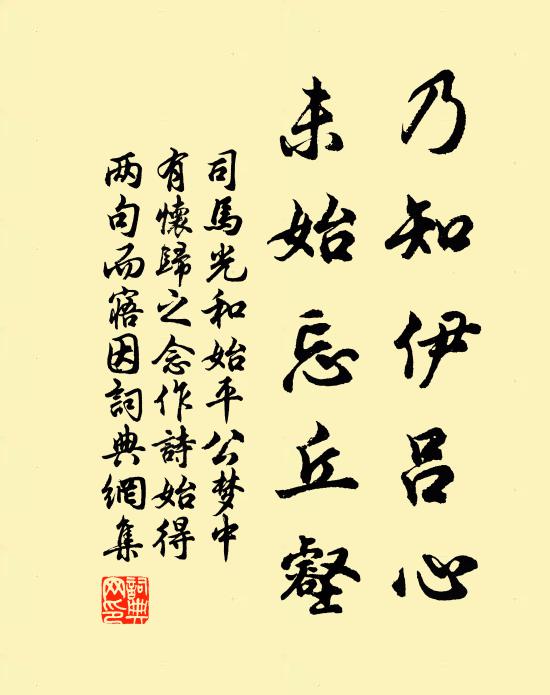 乃知伊吕心
未始忘丘壑
司馬光和始平公梦中
有懷歸之念作詩始得
两句而寤因詞典網集
詞典
网印